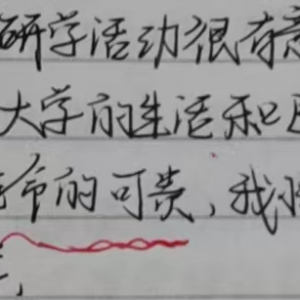 研学活动很有意
大学的生活和
币的可贵,我